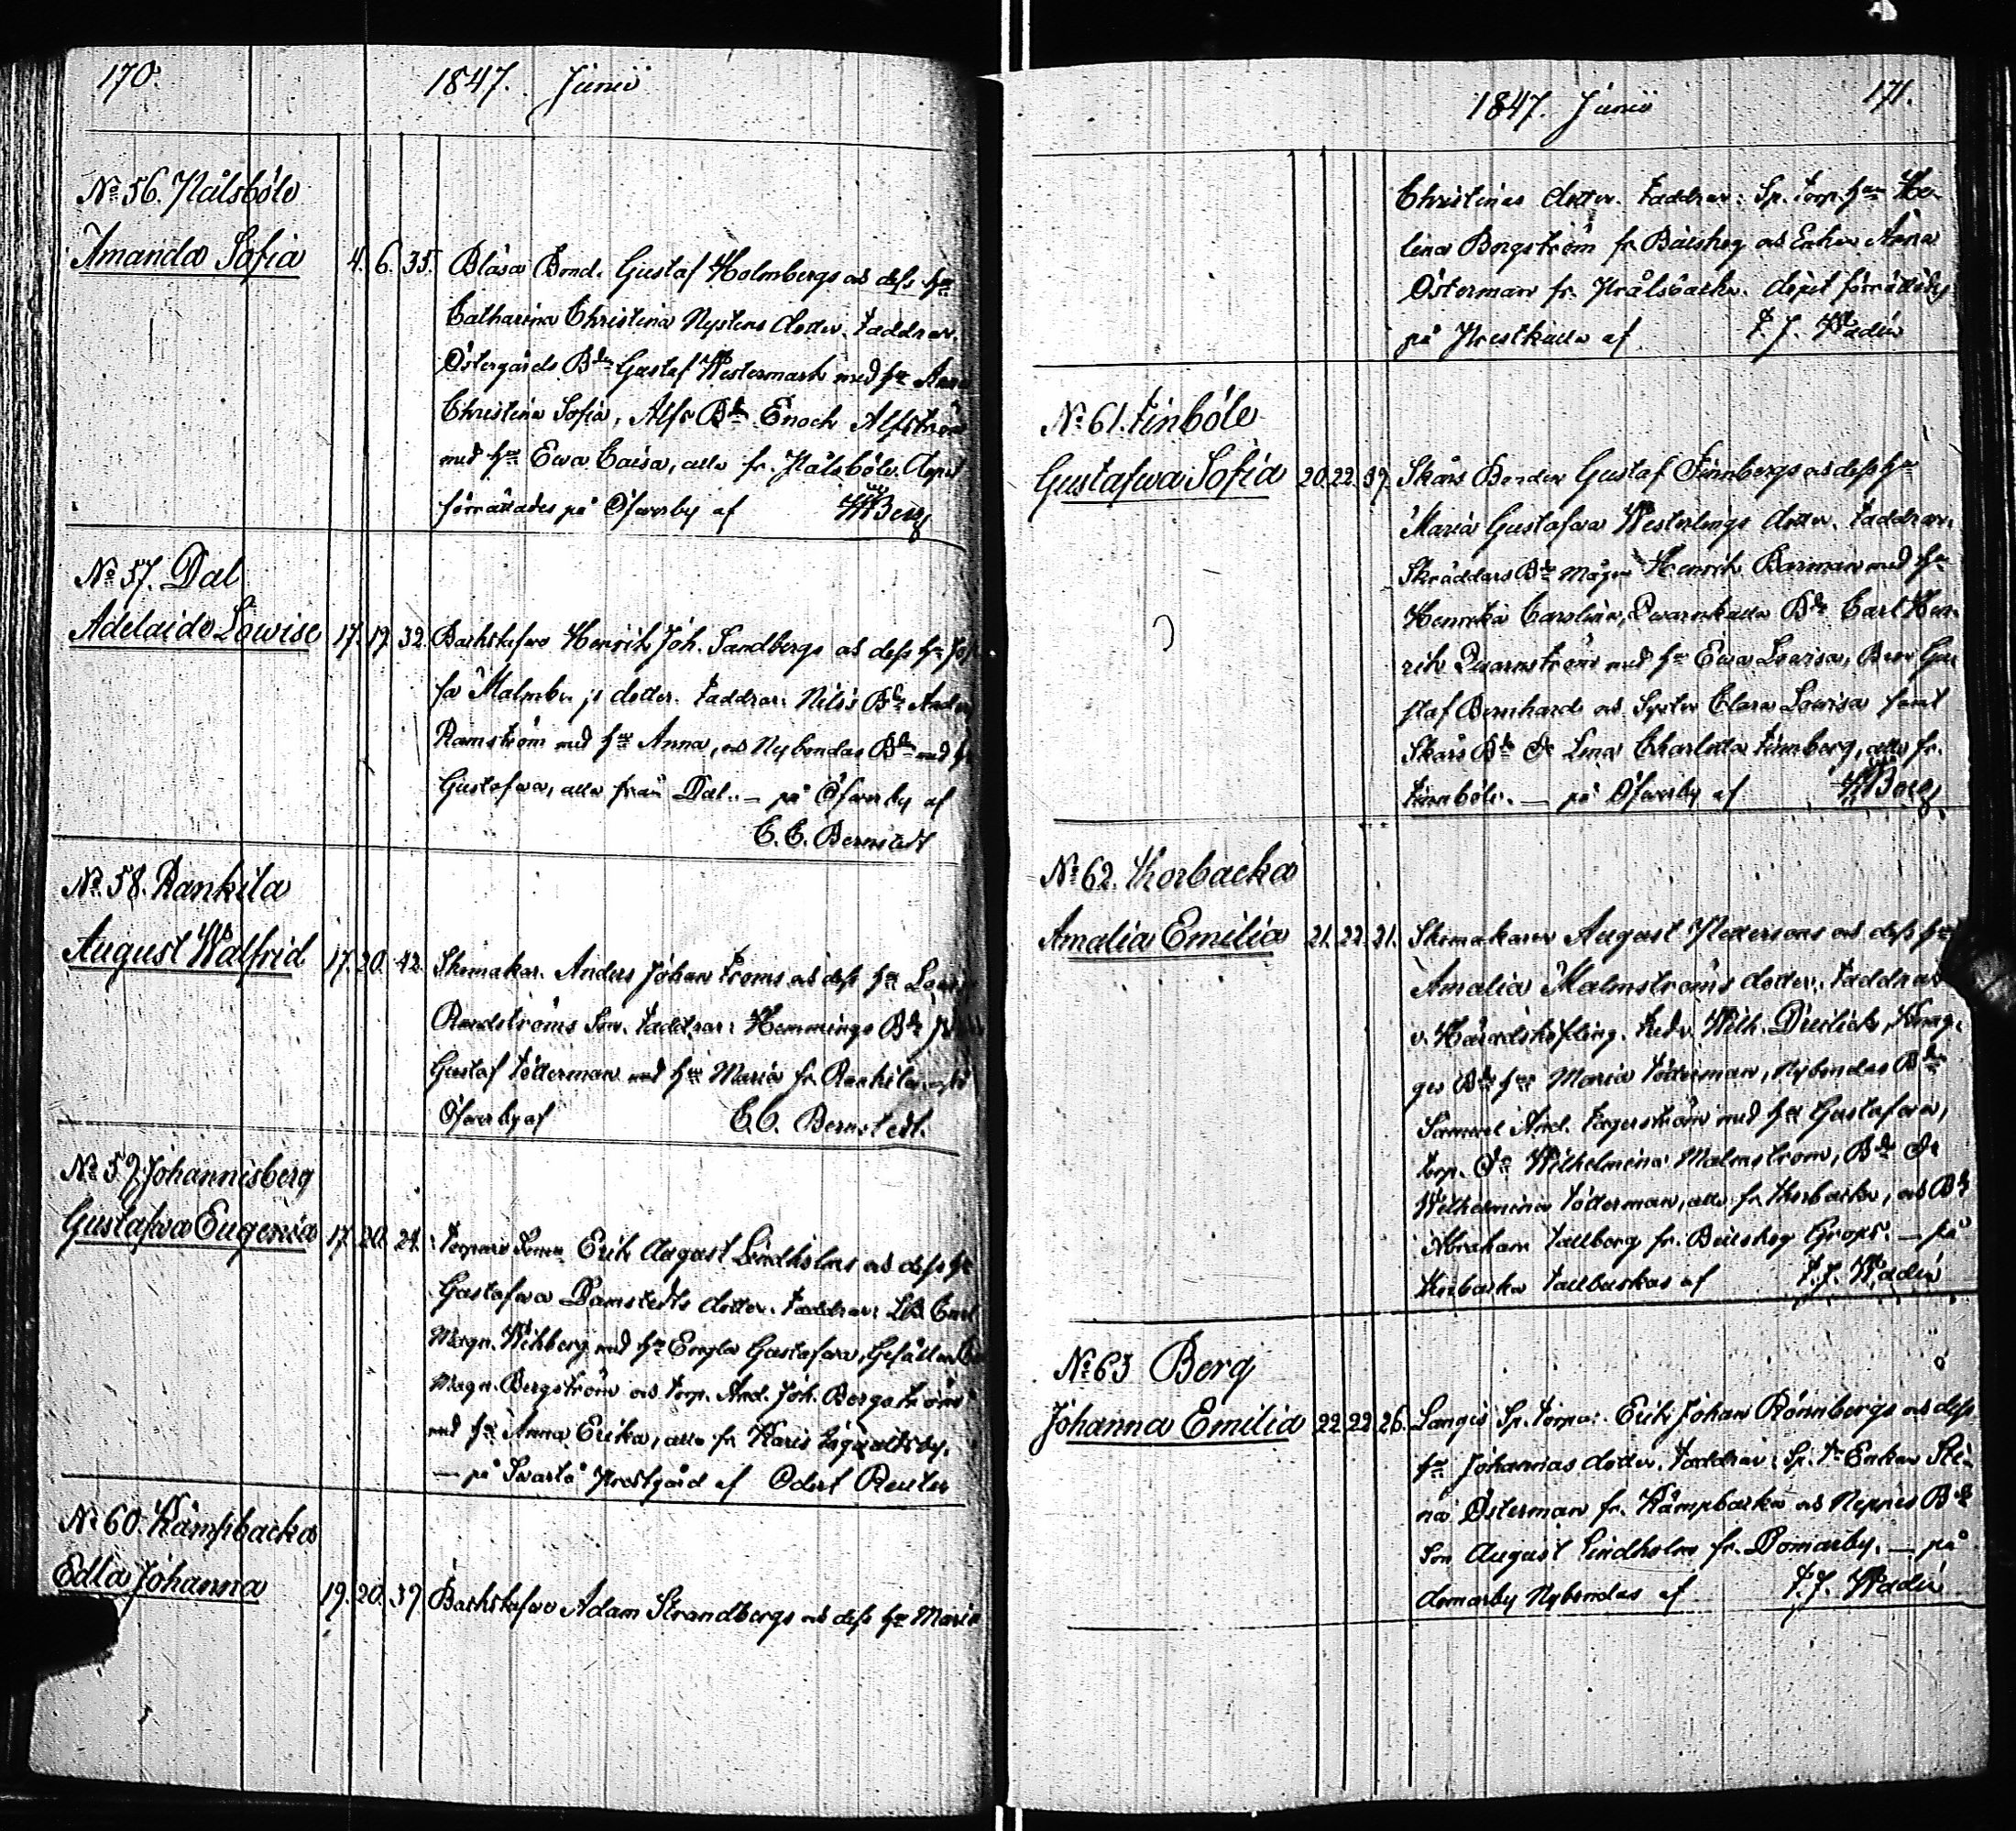 170.
1847. Junii
No 56. Pålsböle
Amanda Sofia 4. 6. 35. Bläsa Bond. Gustaf Holmbergs och dess hu
Catharina Christina Nystens dotter. Faddrar.
Östergårds Bdn Gustaf Westermark med hu Anna
Christina Sofia, Alfs Bdn Enoch Alfström
med hu Ewa Caisa, alla fr. Pålsböle. Dopet
förrättades på Öfverby af Berg
No 57. Dal
Adelaide Lowise 17. 19. 32. Backstufvo Henrik Joh. Sandbergs och dess hu
dotter. Faddrar: Nilsis Bdn
Ramström med hu Anna, och Nybondas Bdn med
Gustafva, alla från Dal. — på Öfverby af
C. C. Bernstedt
No 58. Rankila
August Walfrid 17. 20. 42. Skomakar. Anders Johan Froms och dess hu
Rundströms Son. Faddrar: Hemmings Bdn
Gustaf Tötterman med hu Maria fr. Rankila
Öfverby af C. C. Bernstedt.
No 59. Johannisberg
Gustafva Eugenia 17. 20. 24. Torpare Sonen Erik August Lindholms och dess hu
Gustafva Damstedts dotter. Faddrar: Carl
Magn. Wihberg med hu Engla Gustafva, Gesällen
Magn. Bergström och torp. And. Joh. Bergström
med hu Anna Erika, alla fr Karis
— på Svartå Prestgård af Odert Reuter
No 60. Kämpbacka
Edla Johanna 19. 20. 39. Backstufvo Adam Strandbergs och dess hu Maria
1847. Junii
171.
Christinas dotter. Faddrar: Sp. torp. hu He-
lina Borgström fr. och Enkan Anna
Österman fr. Dopet förrättades
på Prestkulla af F. J. Wadén
No 61. Finböle
Gustafva Sofia 20. 22. 39. Skårs Bonden Gustaf Finnbergs och dess hu
Maria Gustafva Westerlings dotter. Faddrar.
Skräddars Bdn Mågen Henrik Barman med hu
Henrika Carolina, Qvarnkulla Bdn Carl Hen-
rik Qvarnström med hu Ewa Lovisa, Bror Gu-
staf Bernhard och Syster Clara Lowisa samt
Skårs Bdn Dr Lena Charlotta Finnberg, alla fr.
Finnböle. — på Öfverby af Berg
No 62. Thorbacka
Amalia Emilia 21. 22. 31. Skomakaren August Pettersons och dess hu
Amalia Malmströms dotter. Faddrar
v. Häradshöfding. Fredr. Wilh.
Bdn hu Maria Tötterman, Nybondas Bdn
Samuel And. Fagerström med hu Gustafva,
torp. Dr Wilhelmina Malmström, Bdn Dr
Wilhelmina Töterman, alla fr. Thorbacka, och Bdn
Abraham Tallberg fr. — på
Thorbacka Tallbackas af F. J. Wadén
No 63 Berg
Johanna Emilia 22. 23. 26. Langis Sp. torpar. Erik Johan Rönnbergs och dess
hu Johannas dotter. Faddrar: Sp. Tn Enkan Sti-
na Österman fr. Kämpbacka och Bdn
Son August Lindholm fr. Domarby. — på
Domarby Nybondas af F. J. Wadén